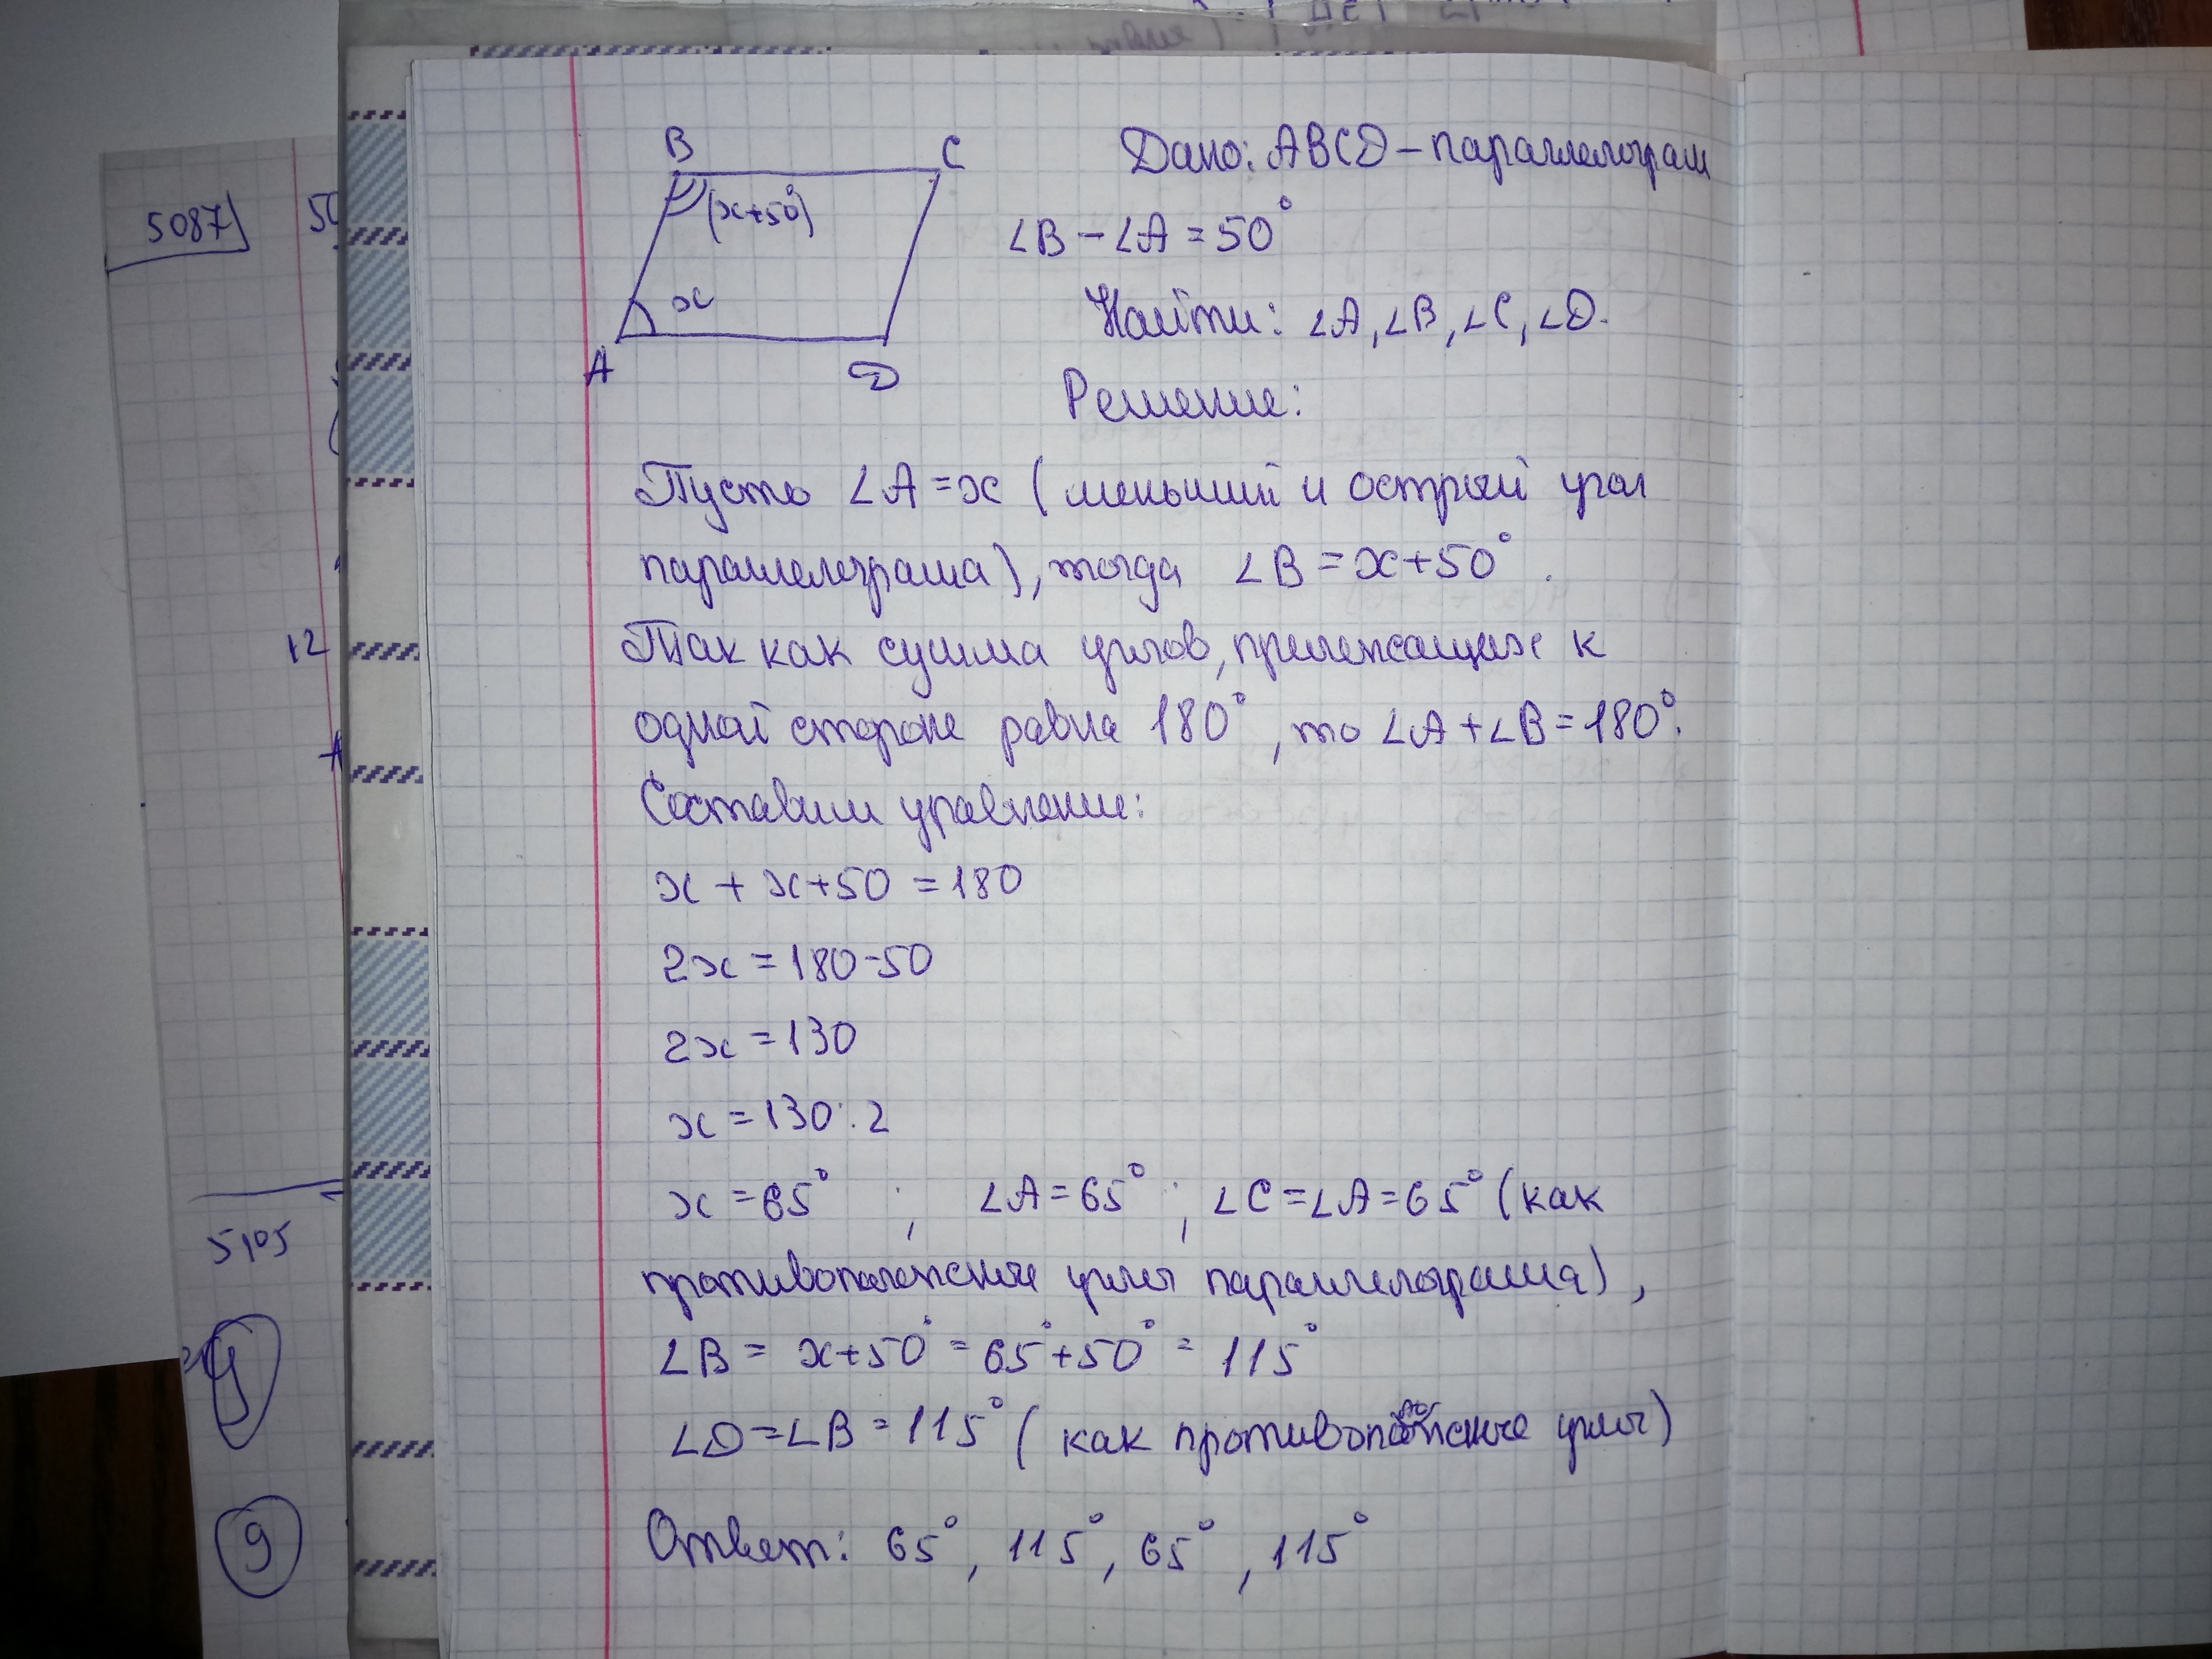 B C
(x+50°)
x
A D
Дано: ABCD – параллелограм
∠B – ∠A = 50°
Найти: ∠A, ∠B, ∠C, ∠D.
Решение:
Пусть ∠A = x (меньший и острый угол
параллелограмма), тогда ∠B = x+50°.
Так как сумма углов, прилежащих к
одной стороне равна 180°, то ∠A + ∠B = 180°.
Составим уравнение:
x + x+50 = 180
2x = 180-50
2x = 130
x = 130 : 2
x = 65° ; ∠A = 65° ; ∠C = ∠A = 65° (как
противоположные углы параллелограмма),
∠B = x+50° = 65°+50° = 115°
∠D = ∠B = 115° (как противоположные углы)
Ответ: 65°, 115°, 65°, 115°
5087
12
5105
9